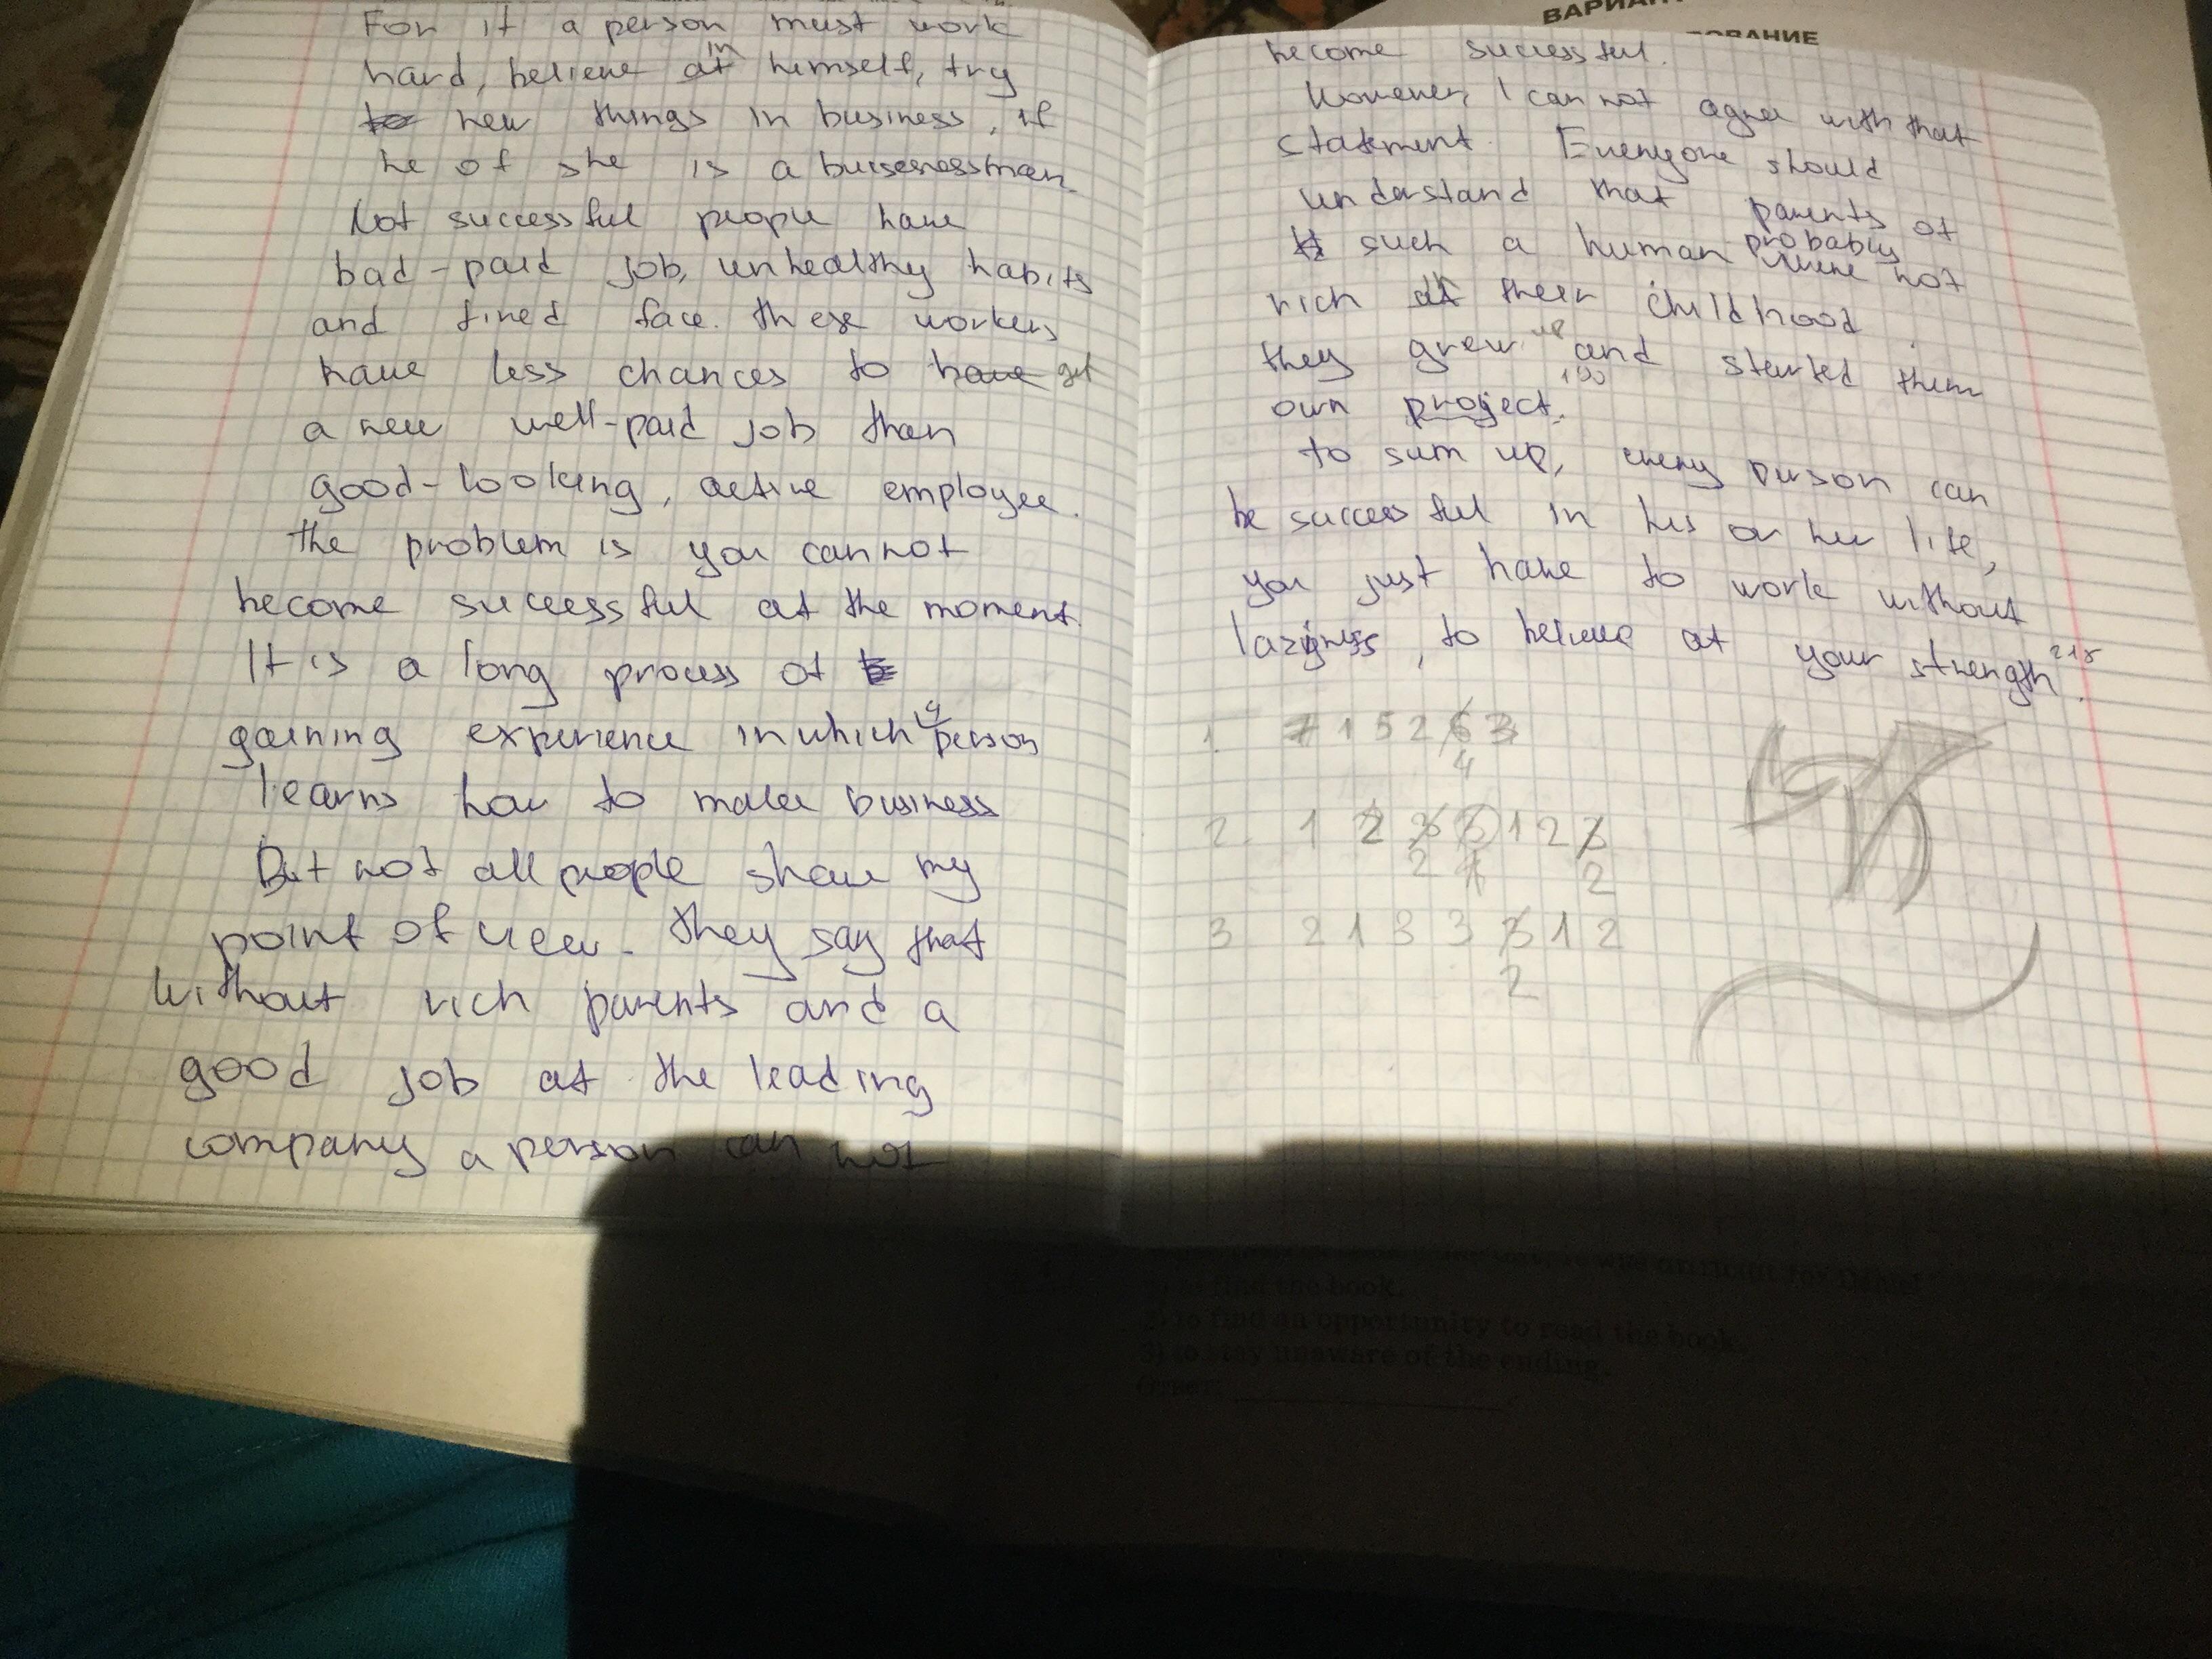 For it a person must work
in
hard, believe at himself, try
to new things in business, if
he of she is a buisenessman
Not successful people have
bad-paid job, unhealthy habits
and tired face. These workers
have less chances to have get
a new well-paid job than
good-looking, active employee.
The problem is you cannot
become successful at the moment.
It is a long process of
gaining experience in which a person
learns how to make business
But not all people share my
point of view. They say that
without rich parents and a
good job at the leading
company a person can not
ВАРИАНТ
become successful.
However, I can not agree with that
statement. Everyone should
understand that parents of
such a human probably were not
rich in their childhood.
they grew up and started them
190
own project.
To sum up, every person can
be successful in his or her life,
you just have to work without
laziness, to believe at your strength. 218
1. 7 1 5 2 6 3
4
2. 1 2 3 3 1 2 3
2 1 2
3 2 1 3 3 3 1 2
2
2) to find an opportunity to read the book.
3) to stay unaware of the ending.